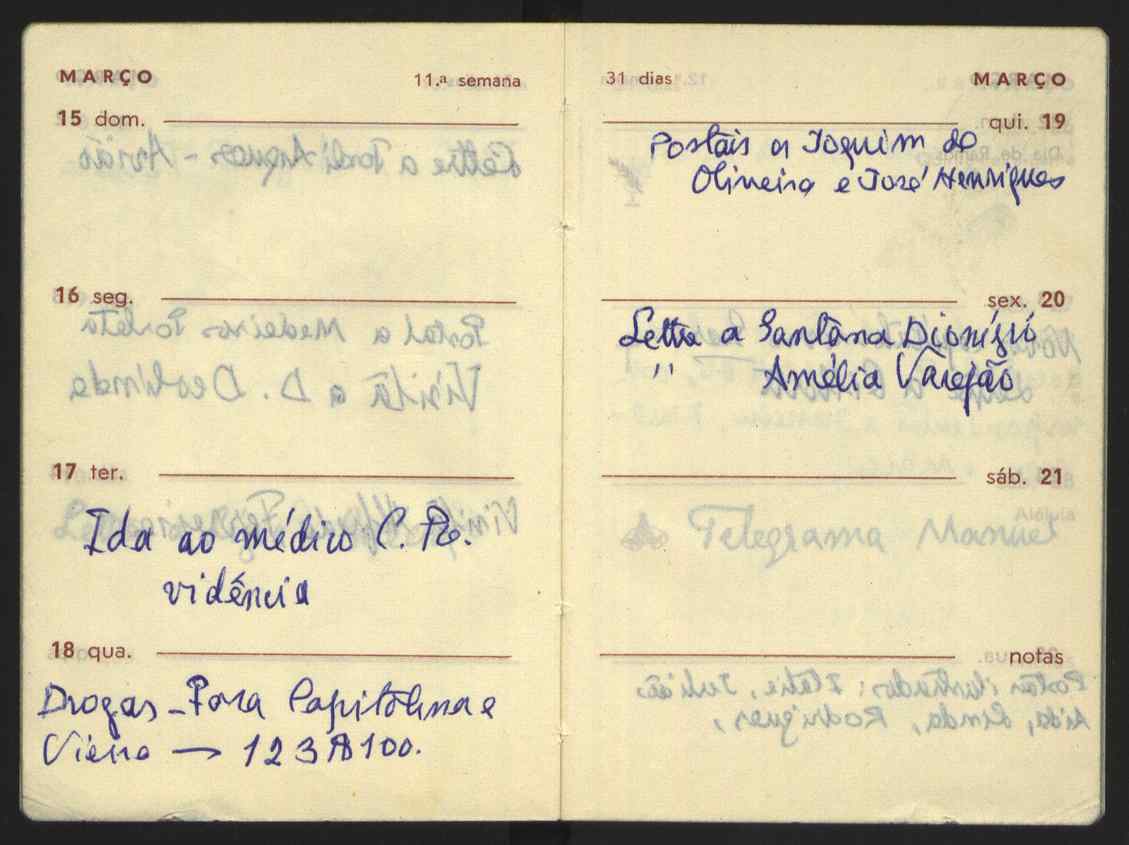 MARÇO 11.ª semana
15 dom.
16 seg.
17 ter.
Ida ao médico C. Pre.
vidência
18 qua.
Drogas – Para Capitolina e
→ 123$100.
31 dias MARÇO
qui. 19
Postais a Joquim de
Oliveira e José Henriques
sex. 20
Lettre a Santana Dionísio
" Amélia Varejão
sáb. 21
Telegrama Manuel
notas